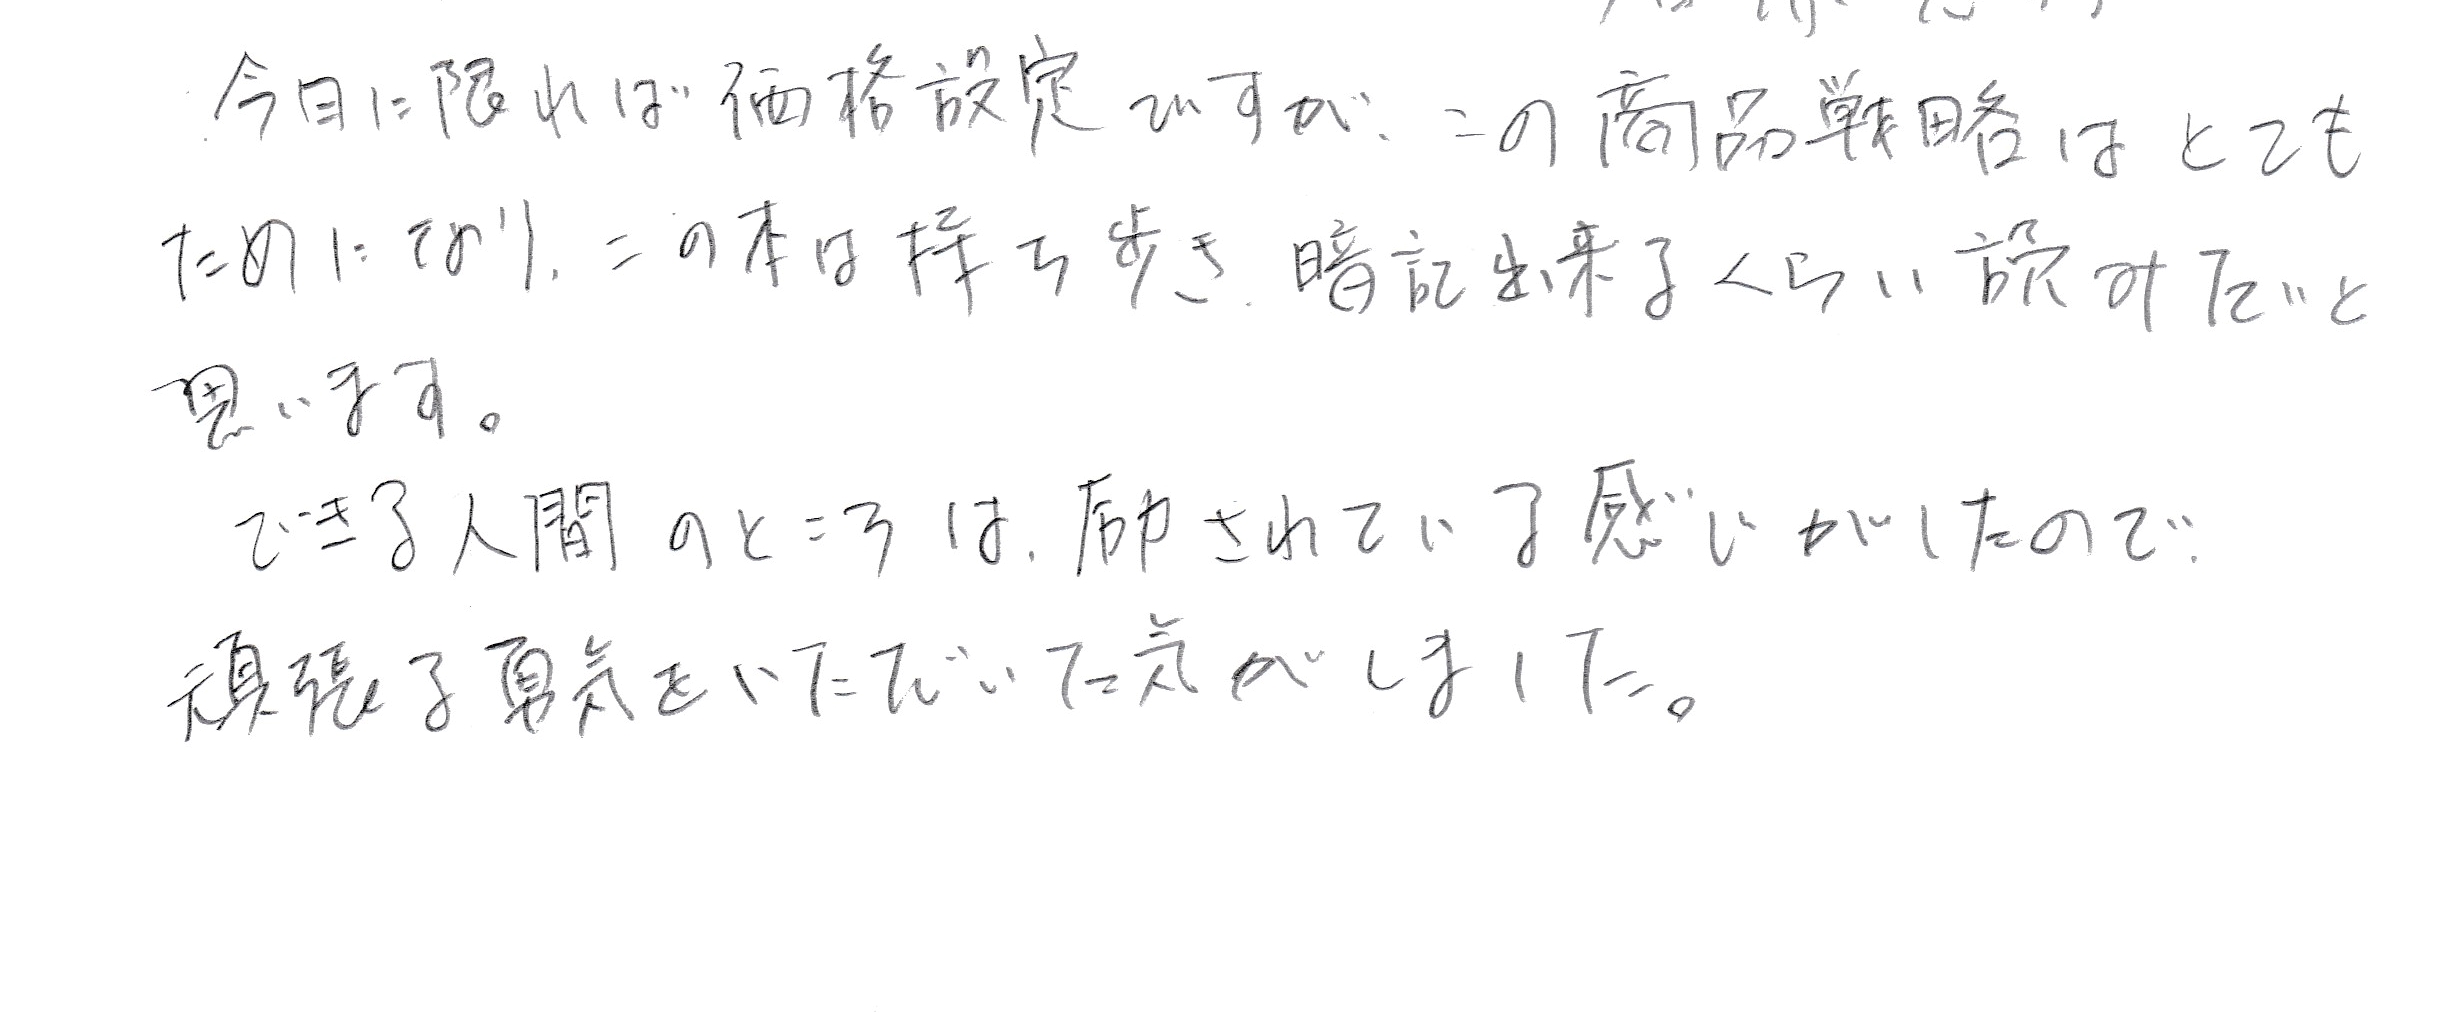 今日に限れば価格設定ですが、この商品戦略はとても
ためになり、この本は持ち歩き、暗記出来るくらい読みたいと
思います。
できる人間のところは、励されている感じがしたので、
頑張る勇気をいただいた気がしました。